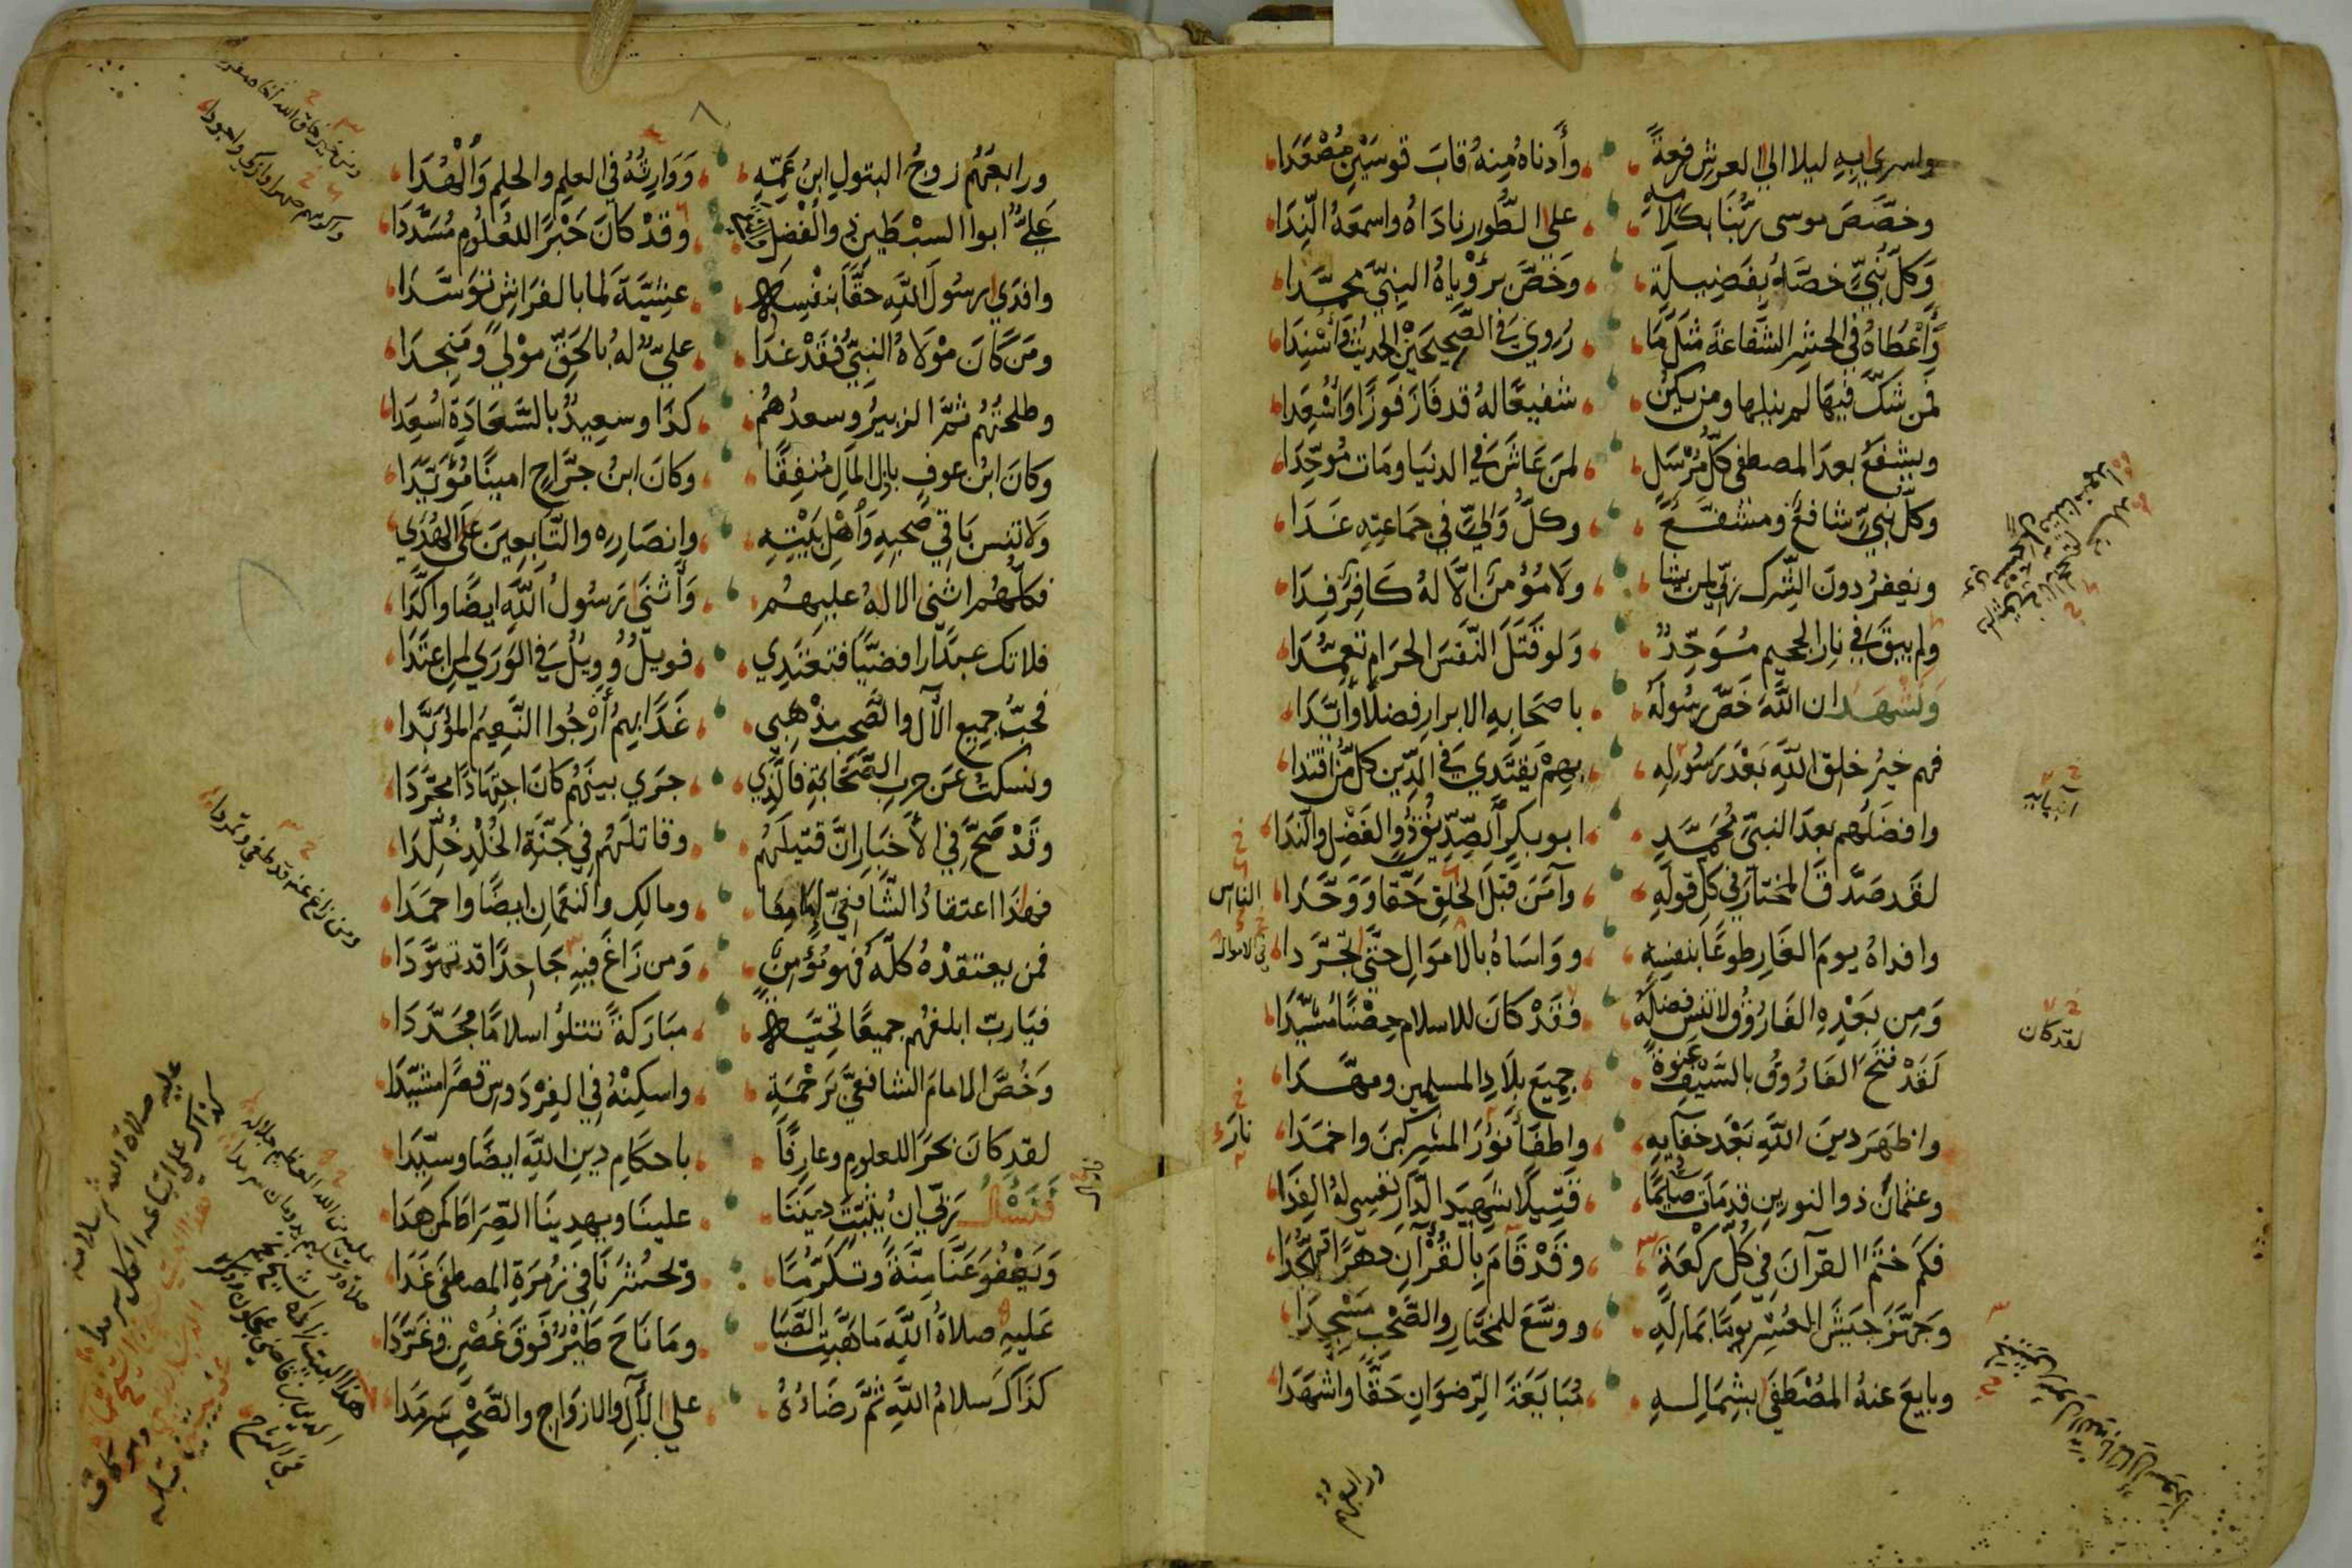 واسري به ليلا الي العرش رفعة وأدناه منه قاب قوسين مصعدا
وخصص موسى ربنا بكلامه علي الطور ناداه واسمعه الندا
وكل نبي خصه بفضيلة وخص برؤياه النبي محمدا
وأعطاه في الحشر الشفاعة مثل ما روي في الصحيحين الحديث وأسندا
فمن شك فيها لم ينلها ومن يكن شفيعا له قد فاز فوزا وأسعدا
ويشفع بعد المصطفى كل مرسل لمن عاش في الدنيا ومات موحدا
وكل نبي شافع ومشفع وكل ولي في جماعته غدا
ويغفر دون الشرك ربي لمن يشا ولا مؤمن الا له كافر فدا
ولم يبق في نار الجحيم موحد ولو قتل النفس الحرام تعمدا
ونشهد ان الله خص رسوله باصحابه الابرار فضلا وأيدا
فهم خير خلق الله بعد رسوله بهم يقتدي في الدين كل من اقتدا
وافضلهم بعد النبي محمد ابو بكر الصديق ذو الفضل والندا
لقد صدق المختار في كل قوله وآمن قبل الخلق حقا ووحدا
وافداه يوم الغار طوعا بنفسه وواساه بالاموال حتى تجردا
ومن بعده الفاروق لا تنس فضله فقد كان للاسلام حصنا مشيدا
لقد فتح الفاروق بالسيف عنوة جميع بلاد المسلمين ومهدا
واظهر دين الله بعد خفايه واطفأ نور المشركين واخمدا
وعثمان ذو النورين قد مات صايما قتيلا شهيد الدار نفسي له الفدا
فكم ختم القرآن في كل ركعة وقد قام بالقرآن دهرا تهجدا
وجهز جيش العسر يوما بماله ووسع للمختار والصحب مسجدا
وبايع عنه المصطفى بشماله مبايعة الرضوان حقا واشهدا
انبيايه
الناس
في الاموال
لقد كان
نار
ورابعهم
ورابعهم زوج البتول ابن عمه ووارثه في العلم والحلم والهدا
علي ابوا السبطين ذو الفضل وقد كان حبرا للعلوم مسددا
وافدي رسول الله حقا بنفسه عشية لما بالفراش توسدا
ومن كان مولاه النبي فقد غدا علي له بالحق مولى ومنجدا
وطلحتهم ثم الزبير وسعدهم كذا وسعيد بالسعادة اسعدا
وكان ابن عوف باذل المال منفقا وكان ابن جراح امينا مؤيدا
ولا تنس باقي صحبه وأهل بيته وانصاره والتابعين على الهدي
فكلهم اثنى الاله عليهم وأثنى رسول الله ايضا واكدا
فلا تك عبدا رافضيا فتعتدي فويل وويل في الوري لمن اعتدا
فحب جميع الآل والصحب مذهبي غدا بهم أرجوا النعيم المؤبدا
ونسكت عن حرب الصحابة فالذي جري بينهم كان اجتهادا مجردا
وقد صح في الأخبار ان قتيلهم وقاتلهم في جنة الخلد خلدا
فهذا اعتقاد الشافعي امامنا ومالك والنعمان ايضا واحمدا
فمن يعتقده كله فهو مؤمن ومن زاغ فيه جاحدا قد تهودا
فيارب ابلغهم جميعا تحية مباركة تتلوا سلاما مجددا
وخص الامام الشافعي برحمة واسكنه في الفردوس قصرا مشيدا
لقد كان بحرا للعلوم وعارفا باحكام دين الله ايضا وسيدا
فنسأل ربي ان يثبت ديننا علينا ويهدينا الصراط كمن هدا
ويعفو عنا منة وتكرما ويحشرنا في زمرة المصطفى غدا
عليه صلاة الله ما هبت الصبا وما ناح طير فوق غصن وغردا
كذاك سلام الله ثم رضاؤه علي الآل والازواج والصحب سرمدا
ومن زاغ عنه قد طغى وتمردا